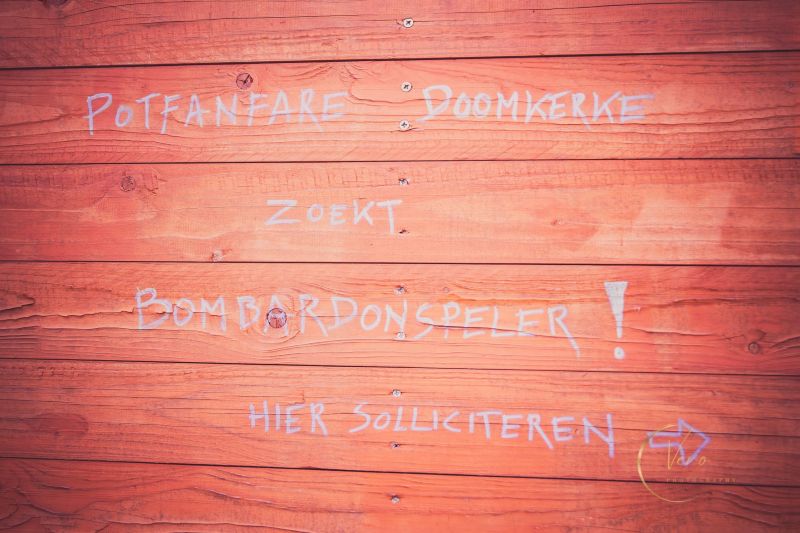 POTFANFARE DOOMKERKE
ZOEKT
BOMBARDONSPELER!
HIER SOLLICITEREN
PHOTOGRAPHY